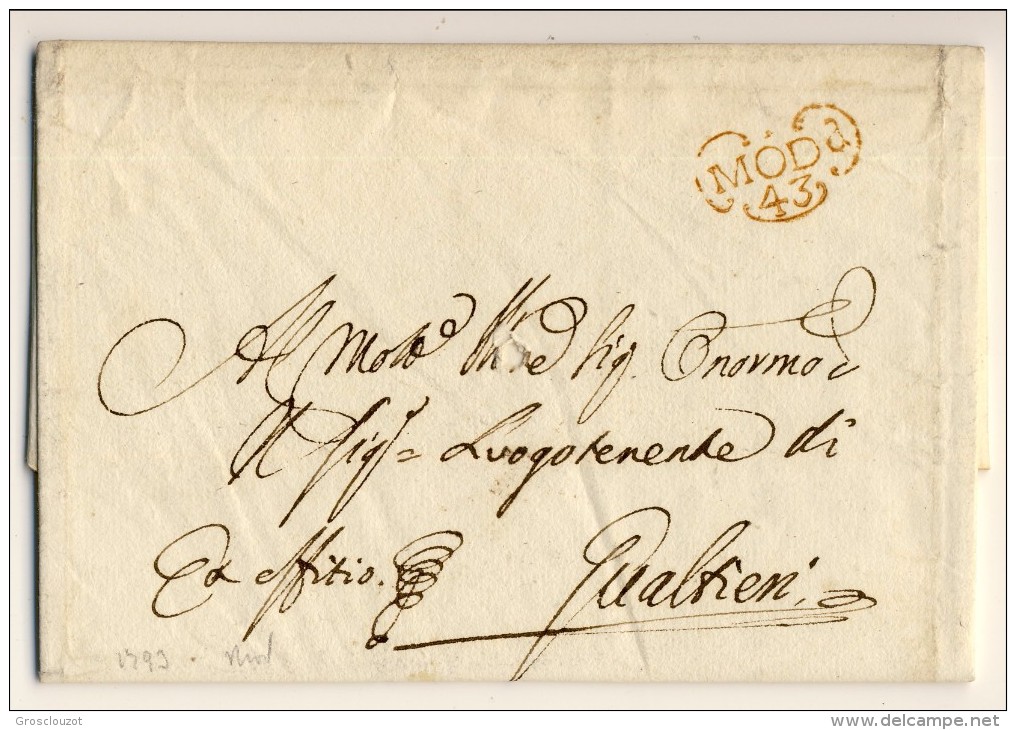 MÓD a
43
Al Molto Ill.re Sig. Onormo
Il Sig= Luogotenente di
Ex offitio. Gualtieri
1793 - Mod
Grosclouzot
www.delcampe.net